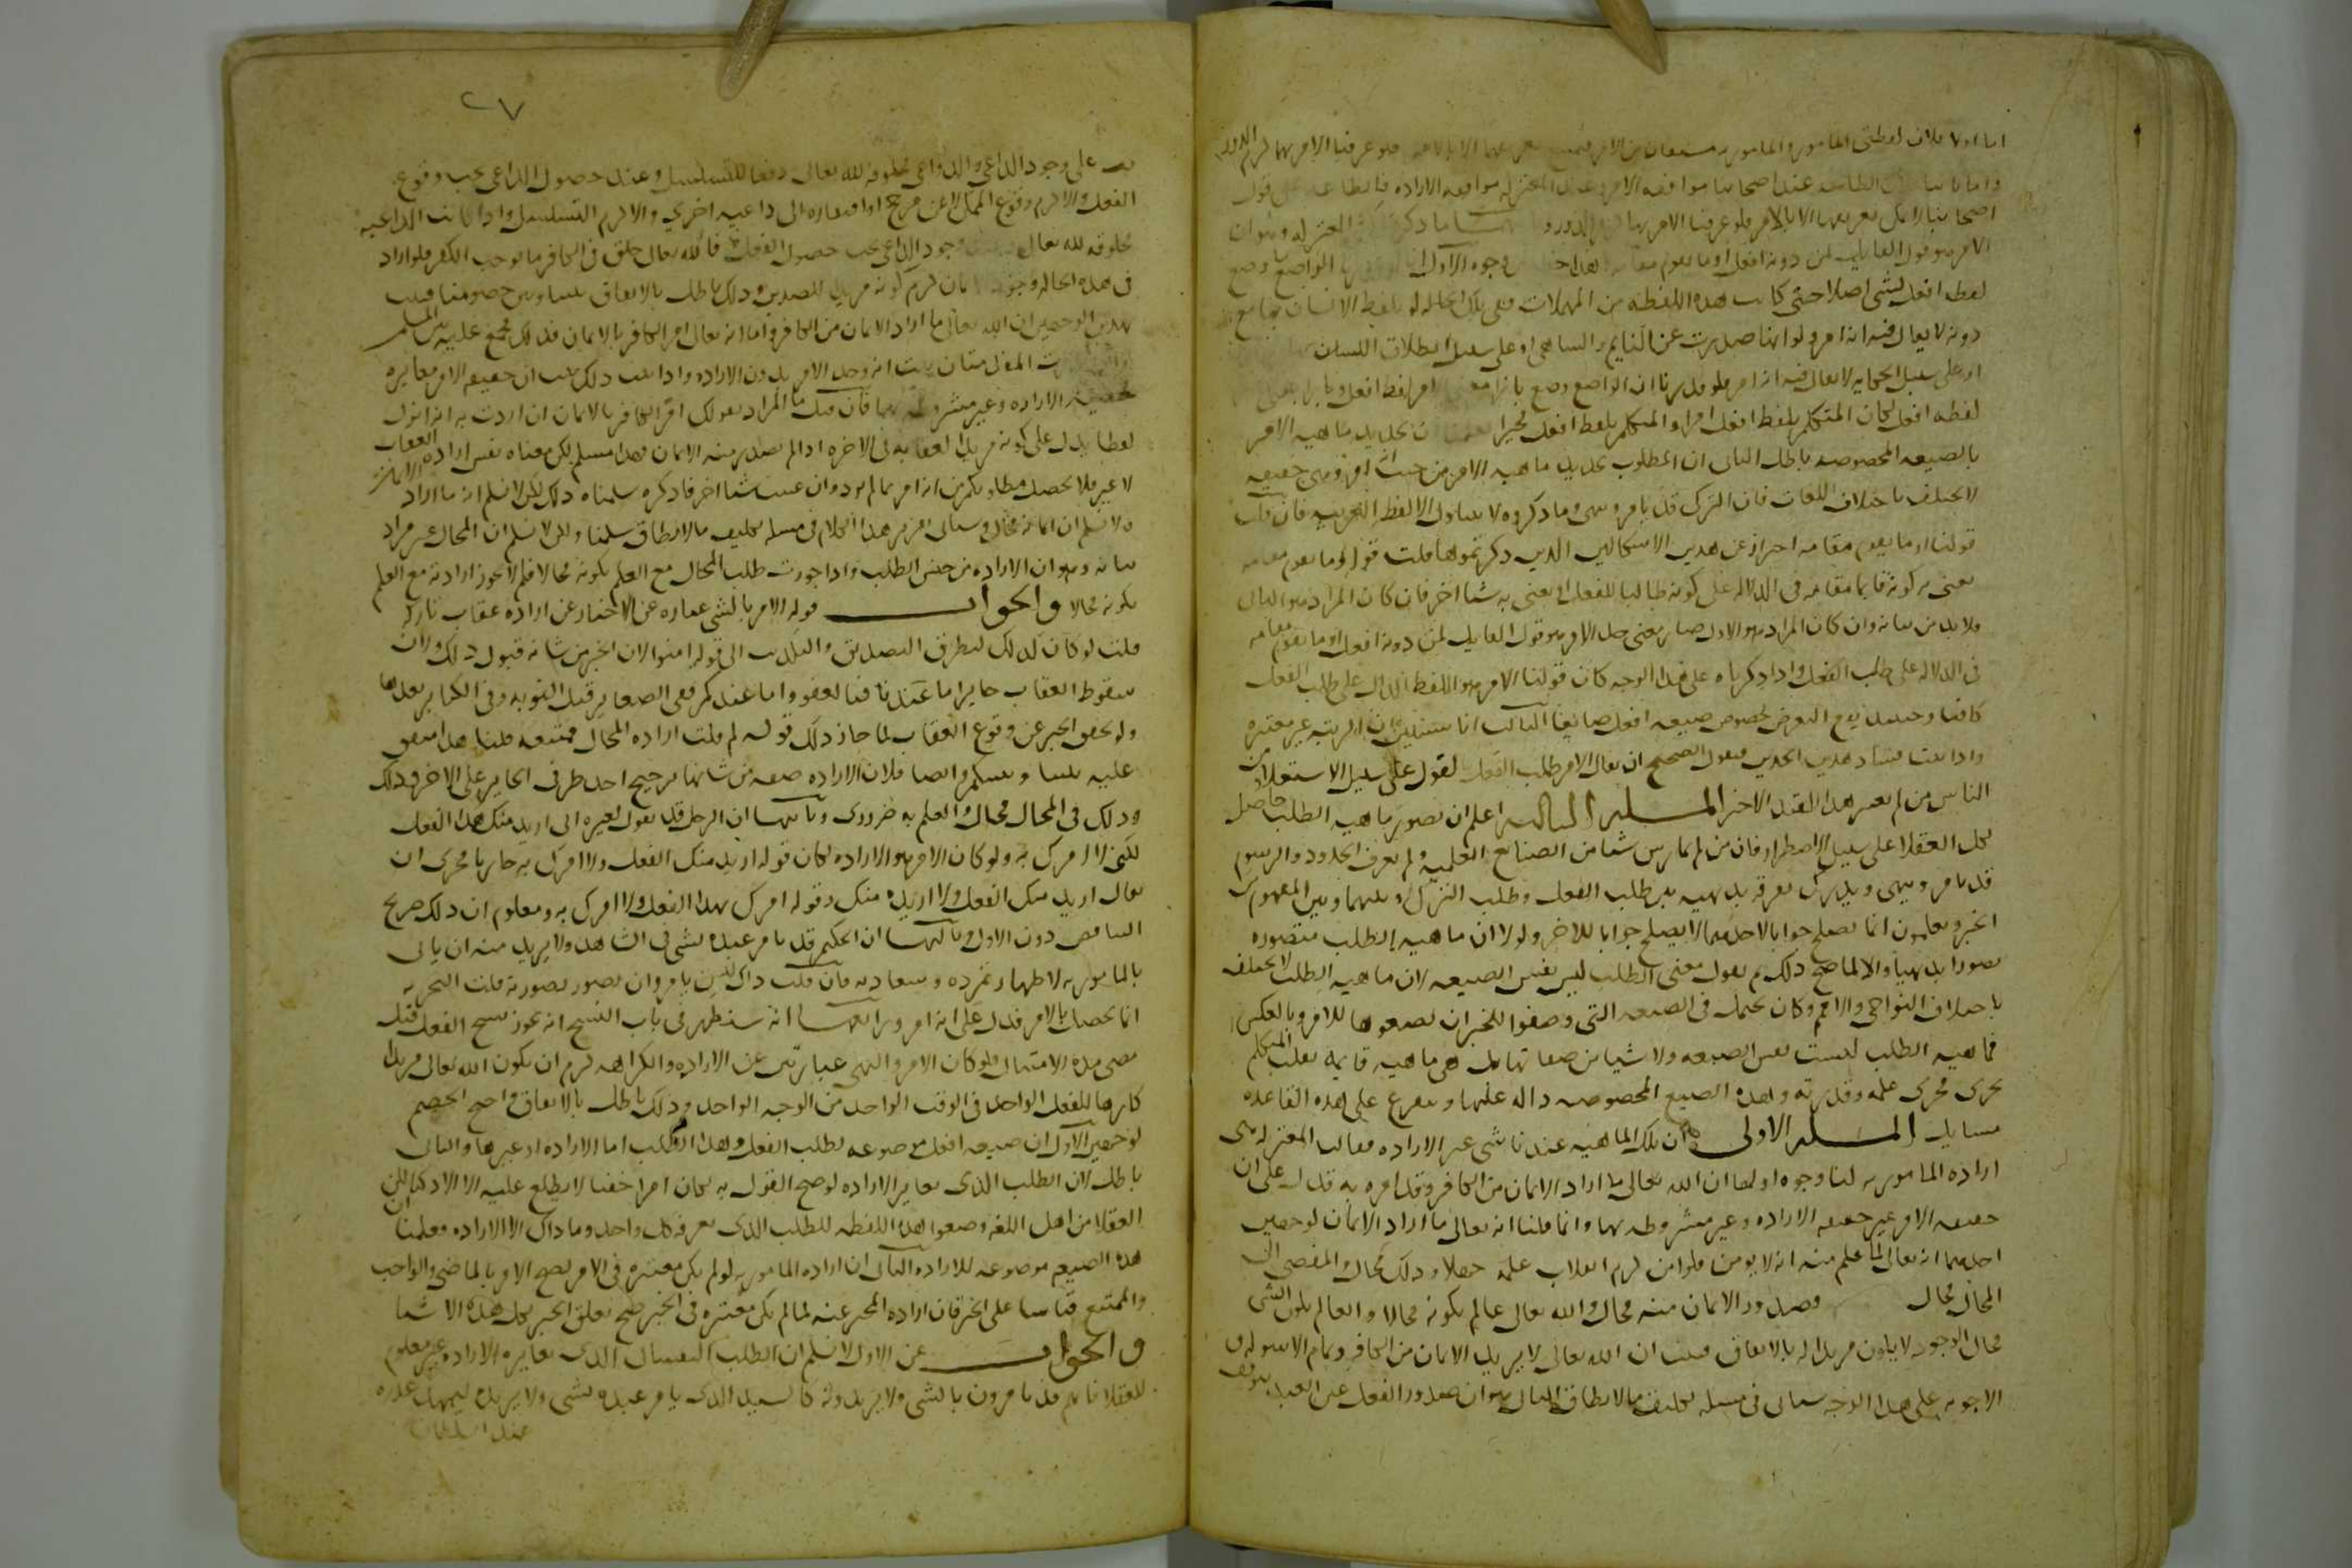 اما اولا فلان لفظتي المامور والمامور به مشتقتان من الامر فيمتنع تعريفهما الا بالامر فلو عرفنا الامر بهما لزم الدور
واما ثانيا فلان الطاعة عند اصحابنا موافقة الامر وعند المعتزلة موافقة الارادة فالطاعة على قول
اصحابنا لا يمكن تعريفها الا بالامر فلو عرفنا الامر بها لزم الدور وثانيهما ما ذكره المعتزلة وهو ان
الامر هو قول القايل لمن دونه افعل او ما يقوم مقامه وهذا خطا من وجوه الاول انا لو قدرنا ان الواضع ما وضع
لفظه افعل لشي اصلا حتى كانت هذه اللفظه من المهملات ففي تلك الحالة لو تلفظ الانسان بها مع
دونه لا يقال فيه انه امر ولو انها صدرت عن النايم والساهي او على سبيل انطلاق اللسان بها
او على سبيل الحكايه لا يقال فيه انه امر ولو قدرنا ان الواضع وضع بازا معنى الامر لفظ افعل وبازا معنى
لفظه افعل لكان المتكلم بلفظ افعل امرا والمتكلم بلفظ افعل مخبرا فعلمنا ان تحديد ماهيه الامر
بالصيغه المخصوصه باطل الثاني ان المطلوب تحديد ماهيه الامر من حيث انه امر وهي حقيقه
لا تختلف باختلاف اللغات فان التركي قد يامر وينهى وما ذكروه لا يتناول الا الالفظ العربيه فان قلت
قولنا او ما يقوم مقامه احتراز عن هذين الاشكالين الذين ذكرتموهما قلت قوله او ما يقوم مقامه
يعني به كونه قايما مقامه في الدلاله على كونه طالبا للفعل او يعني به شيا اخر فان كان المراد هو الثاني
فلا بد من بيانه وان كان المراد هو الاول صار معنى حد الامر هو قول القايل لمن دونه افعل او ما يقوم مقامه
في الدلاله على طلب الفعل واذا ذكرناه على هذا الوجه كان قولنا الامر هو اللفظ الدال على طلب الفعل
كافيا وحينئذ يقع التعرض لخصوص صيغه افعل ضايعا الثالث انا سنبين ان الرتبه غير معتبره
واذا ثبت فساد هذين الحدين فنقول الصحيح ان يقال الامر طلب الفعل بالقول على سبيل الاستعلاء ومن
الناس من لم يعتبر هذا القيد الاخير المسله الثالثه اعلم ان تصور ماهيه الطلب حاصل
لكل العقلا على سبيل الاضطرار فان من لم يمارس شيا من الصنايع العلميه ولم يعرف الحدود والرسوم
قد يامر وينهى ويدرك تفرقه بديهيه بين طلب الفعل وطلب الترك وبينهما وبين المفهوم من
الخبر ويعلمون انما يصلح جوابا لاحدهما لا يصلح جوابا للاخر ولولا ان ماهيه الطلب متصوره
تصورا بديهيا والا لما صح ذلك ثم نقول معنى الطلب ليس نفس الصيغه لان ماهيه الطلب لا تختلف
باختلاف النواحي والامم وكان يحتمل في الصيغه التي وضعوا للخبر ان يضعوها للامر وبالعكس
فماهيه الطلب ليست نفس الصيغه ولا شيا من صفاتها بل هي ماهيه قايمه بقلب المتكلم
يجري مجرى علمه وقدرته وهذه الصيغ المخصوصه داله عليها ويتفرع على هذه القاعده
مسايل المسله الاولى ان تلك الماهيه عندنا شي غير الاراده وقالت المعتزله هي
اراده المامور به لنا وجوه اولها ان الله تعالى ما اراد الايمان من الكافر وقد امره به فدل على ان
حقيقه الامر غير حقيقه الاراده وغير مشروطه بها وانما قلنا انه تعالى ما اراد الايمان لوجهين
احدهما انه تعالى لما علم منه انه لا يومن فلو امن لزم انقلاب علمه جهلا وذلك محال والمفضي الى
المحال محال فصدور الايمان منه محال والله تعالى عالم بكونه محالا والعالم بكون الشي
محال الوجود لا يكون مريدا له بالاتفاق فثبت ان الله تعالى لا يريد الايمان من الكافر وتمام الاسوله و
الاجوبه على هذا الوجه سياتي في مسله تكليف ما لا يطاق الثاني هو ان صدور الفعل عن العبد يتوقف
٢٧
على وجود الداعي والدواعي مخلوقه لله تعالى دفعا للتسلسل وعند حصول الداعي يجب وقوع
الفعل والا لزم وقوع الممكن لا عن مرجح او افتقاره الى داعيه اخرى والا لزم التسلسل واذا كانت الداعيه
مخلوقه لله تعالى وجود الداعي يجب حصول الفعل فالله تعالى خلق في الكافر ما يوجب الكفر فلو اراد
في هذه الحاله وجود الايمان لزم كونه مريدا للضدين وذلك باطل بالاتفاق بيننا وبين خصومنا فثبت
بهذين الوجهين ان الله تعالى ما اراد الايمان من الكافر واما انه تعالى امر الكافر بالايمان فذلك مجمع عليه بين المسلمين
واذا ثبتت المقدمتان ثبت انه وجد الامر بدون الاراده واذا ثبت ذلك ثبت ان حقيقه الامر مغايره
لحقيقه الاراده وغير مشروطه بها فان قيل ما المراد بقولك امر الكافر بالايمان ان اردت به انه انزل
لفظا يدل على كونه مريدا لعقابه في الاخره اذا لم يصدر منه الايمان فهذا مسلم لكن معناه نفس اراده العقاب
لا غير فلا يحصل مطلوبكم من انه امر بما لم يرد وان عنيت شيا اخر فاذكره سلمناه ذلك لكن لا نسلم انه ما اراد الايمان
ولا نسلم ان ايمانه محال وسياتي تقرير هذا الكلام في مسله تكليف ما لا يطاق سلمنا ولكن لا نسلم ان المحال غير مراد
بيانه وهو ان الاراده من جنس الطلب واذا جوزت طلب المحال مع العلم بكونه محالا فلم لا تجوز ارادته مع العلم
بكونه محالا والجواب قوله الامر بالشي عباره عن الاخبار عن اراده عقاب تاركه
قلت لو كان كذلك لتطرق التصديق والتكذيب الى قوله امنوا لان الخبر من شانه قبول ذلك ولان
سقوط العقاب جايز اما عندنا فبالعفو واما عندكم ففي الصغاير قبل التوبه وفي الكباير بعدها
ولو تحقق الخبر عن وقوع العقاب لما جاز ذلك قوله لم قلت اراده المحال ممتنعه قلنا هذا متفق
عليه بيننا وبينكم وايضا فلان الاراده صفه من شانها ترجيح احد طرفي الجايز على الاخر وذلك
وذلك في المحال محال والعلم به ضروري وثانيها ان الرجل قد يقول لغيره اني اريد منك هذا الفعل
لكني لا امرك به ولو كان الامر هو الاراده لكان قوله اريد منك الفعل ولا امرك به جاريا مجرى ان
يقال اريد منك الفعل ولا اريده منك وقوله امرك بهذا الفعل ولا امرك به ومعلوم ان ذلك صريح
التناقض دون الاول وثالثها ان الحكيم قد يامر عبده بشي في الشاهد ولا يريد منه ان ياتي
بالمامور به لاظهار تمرده وسو ادبه فان قلت ذاك ليس بامر وان تصور بصورته قلت التجربه
انما تحصل بالامر فدل على انه امر ورابعها انه سنظهر في باب النسخ انه يجوز نسخ الفعل قبل
مضي مده الامتثال فلو كان الامر والنهي عبارتين عن الاراده والكراهه لزم ان يكون الله تعالى مريدا
كارها للفعل الواحد في الوقت الواحد من الوجه الواحد وذلك باطل بالاتفاق واحتج الخصم
لوجهين الاول ان صيغه افعل موضوعه لطلب الفعل وهذا الطلب اما الاراده او غيرها والثاني
باطل لان الطلب الذي يغاير الاراده لو صح القول به لكان امرا خفيا لا يطلع عليه الا الاذكيا لكن
العقلا من اهل اللغه وضعوا هذه اللفظه للطلب الذي يعرفه كل واحد وما ذاك الا الاراده فعلمنا ان
هذه الصيغه موضوعه للاراده الثاني ان اراده المامور به لو لم تكن معتبره في الامر لصح الامر بالماضي والواجب
والممتنع قياسا على الخبر فان اراده المخبر عنه لما لم تكن معتبره في الخبر صح تعلق الخبر بكل هذه الاشيا
والجواب عن الاول لا نسلم ان الطلب النفساني الذي يغايره الاراده غير معلوم
للعقلا فانهم قد يامرون بالشي ولا يريدونه كالسيد الذي يامر عبده بشي ولا يريده ليمهد عذره
عند السلطان